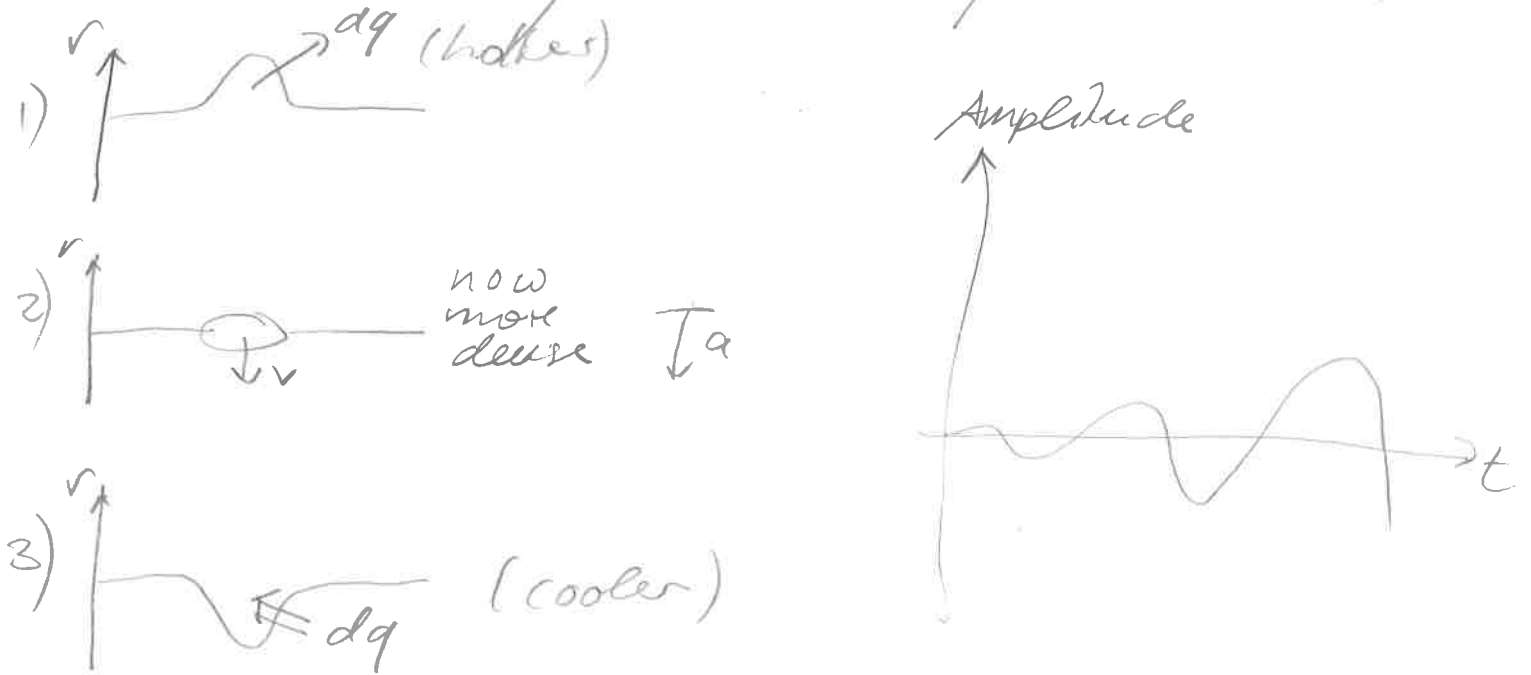 r
dq (hotter)
1)
r
2)
now
more
dense
a
v
r
3)
(cooler)
dq
Amplitude
t